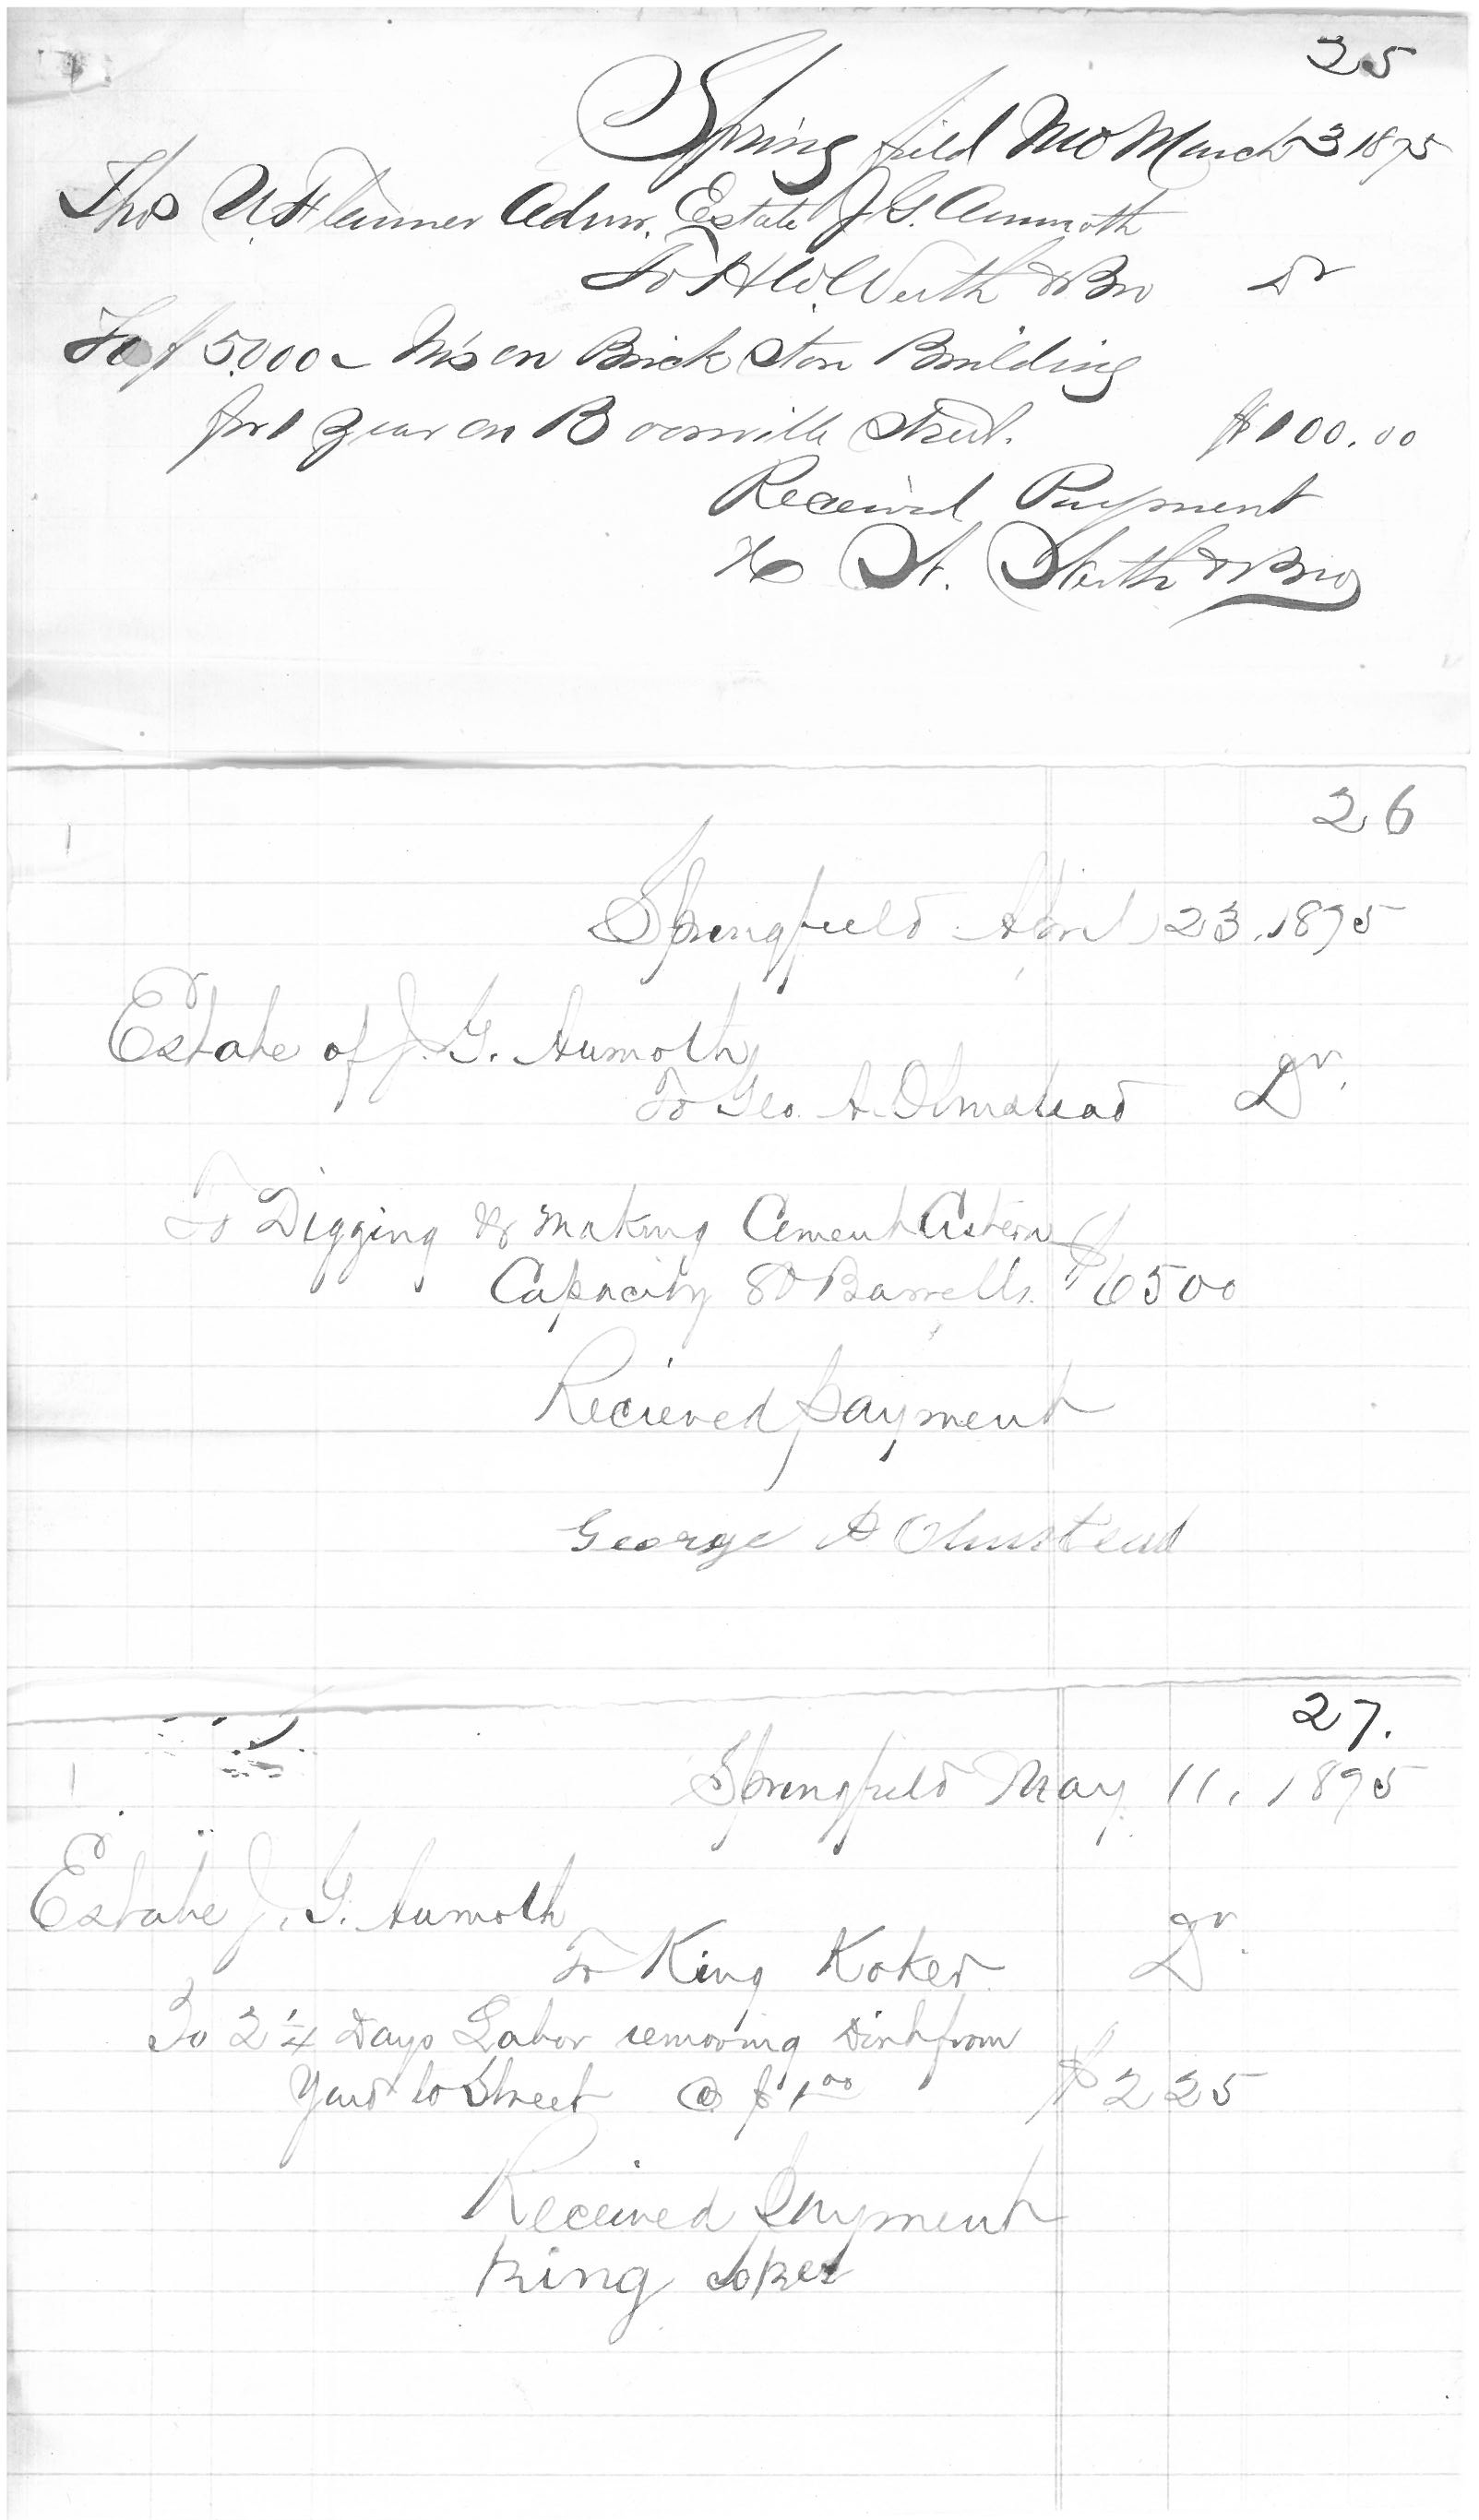 25
Springfield Mo March 3 1895
Thos U. Flanner Admr. Estate J G. Aumoth
To H W. Werth & Bro Dr
To $5.000 - Ins on Brick Store Building
for 1 year on Boonville Street. $100.00
Received Payment
& Bro
26
Springfield April 23, 1895
Estate of J. G. Aumoth
To Geo. A. Olmstead Dr.
To Digging & making Cement Cistern
Capacity 80 Barrells. $6500
Recieved payment
George A Olmstead
27.
Springfield May 11, 1895
Estate J. G. Aumoth
To King Koker Dr.
To 2 1/4 Days Labor removing Dirt from
Yard to Street @ $1 00 $225
Received payment
King coker